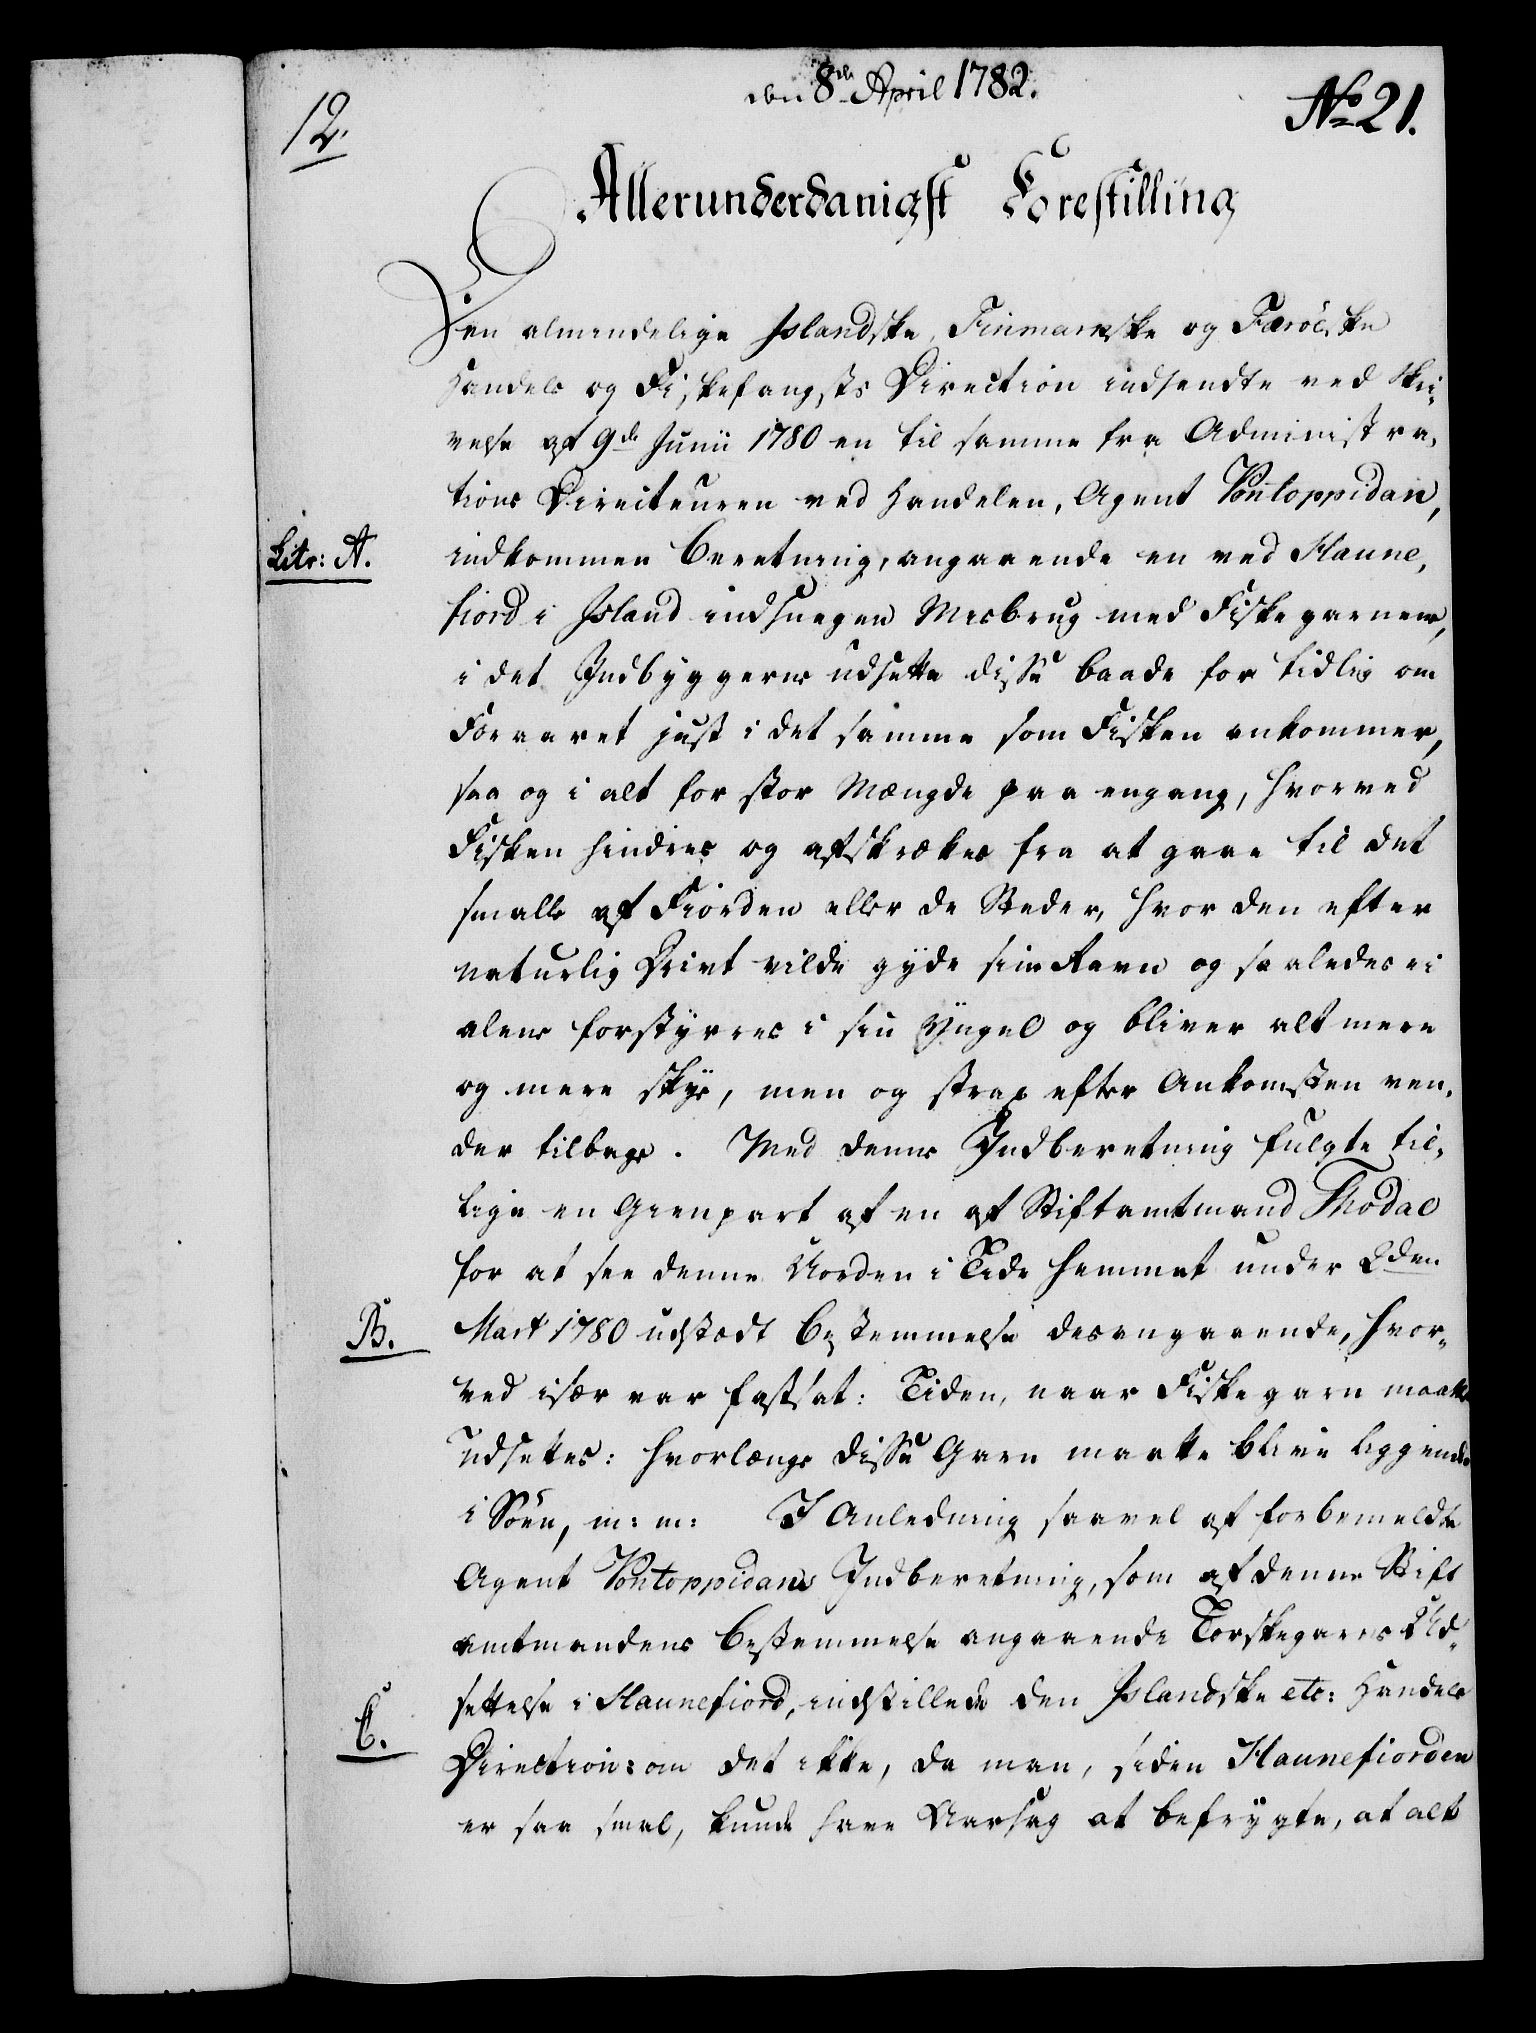 den 8de April 1782.
No 21.
12.
Allerunderdanigst Forestilling
Den almindelige Islandske, Finmarkske og Færöeske
Handels og Fiskefangsts Direction indsendte ved Skri-
velse af 9de Junii 1780 en til samme fra Administra-
tions Directeuren ved Handelen, Agent Pontoppidan,
Litr: A.
indkommen Beretning, angaaende en ved Haune-
fiord i Island indsneegen Misbrug med Fiskegarnene,
i det Indbyggerne udsette disse baade for tidlig om
Foraaret just i det samme som Fisken ankommer,
saa og i alt for stor Mængde paa engang, hvorved
Fisken hindres og afskrækkes fra at gaae til det
smalle af Fiorden eller de Steder, hvor den efter
naturlig Drivt vilde gyde sin Ravn og saaledes ei
alene forstyrres i sin Yngel og bliver alt mere
og mere skye, men og strax efter Ankomsten ven-
der tilbage. Med denne Indberetning fulgte til-
lige en Gienpart af en af Stiftamtmand Thodal
for at see denne Uorden i Tide hemmet under 2den
B.
Mart 1780 udstædt Bestemmelse desangaaende, hvor-
ved især var fastsat: Tiden, naar Fiskegarn maatte
udsettes: hvorlænge disse Garn maatte blive liggende
i Söen, m: m: I Anledning saavel af forbemeldte
Agent Pontoppidans Indberetning, som af denne Stift
amtmandens Bestemmelse angaaende Torskegarns Ud-
settelse i Haunefiord, indstillede den Islandske etc: Handels
C.
Direction: om det ikke, da man, siden Haunefiorden
er saa smal, kunde have Aarsag at befrygte, at alt